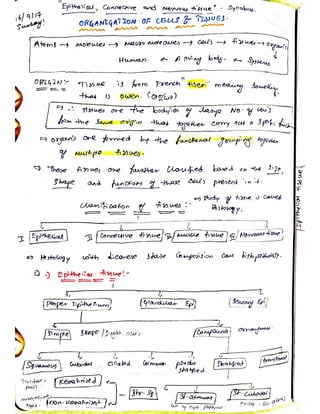 Epithelial, Connective and Nervous tissue" - Syllabus.
16/9/17
Sunday!
ORGANIZATION OF CELLS & TISSUES:
Atoms → Molecules → Macro molecules → Cells → tissues → organs
Human. ← A living body. ← Systems
ORIGIN:- Tissue is from French "tisen" meaning something
that is
→ ∴ Tissues are the of large No. of cells
from the same origin that together carry out a specific
→ organs are formed by the functional grouping together
of multiple tissues.
→ These tissues are further classified based on the size,
shape and functions of these cells present in it.
Classification of tissues:-
→ Study of tissue is called
Histology.
I Epithelial II Connective tissue III Muscle tissue IV Nervous tissue
→ Histology with disease state Composition call histopathology.
① i) Epithelial tissue:-
Proper Epithelium Glandular Epi Sensory Epi
Simple shape Compound
Squamous Cuboidal Ciliated Columnar pseudo stratified Stratified transitional
Keratinised
Non-Keratinised
Str. Sq
St. Columnar
St Cuboidal
Epithelial tissue